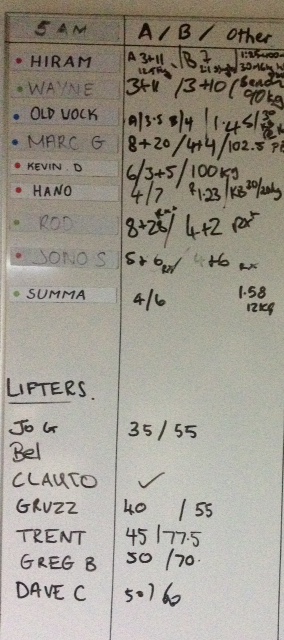 5 AM A / B / Other
HIRAM A 3+11 B 7
WAYNE 3+11 / 3+10 / Bench 90kg
OLD JOCK A/3.5 B/4
MARC G 8+20 / 4+4 / 102.5
KEVIN D 6/3+5 / 100kg
HANO 4/7 1.23 / KB 20/20kg
ROD 8+28 / 4+2 RX
JONO S 5+6 RX / 4+6 RX
SUMMA 4/6 1.58 12KG
LIFTERS.
JO G 35 / 55
Bel
CLAUTO ✓
GRUZZ 40 / 55
TRENT 45 / 77.5
GREG B 50 / 70.
DAVE C 50 / 60